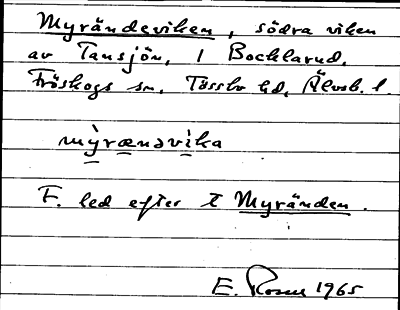 Myrändeviken, södra viken
av Tansjön, i Bocklarud,
Fröskogs sn, Tössbo hd, Älvsb. l.
mỳrænəvìka
F. led efter t Myränden.
E. Rosen 1965